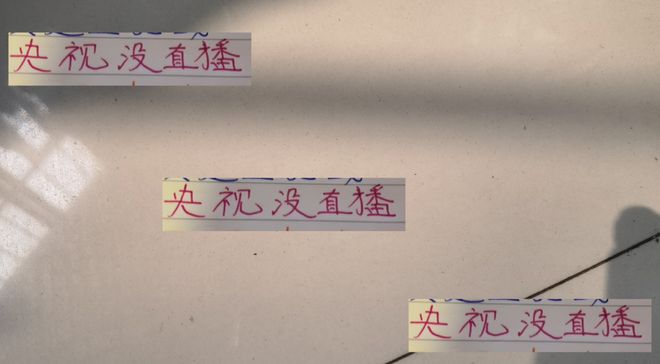 央视没直播
央视没直播
央视没直播